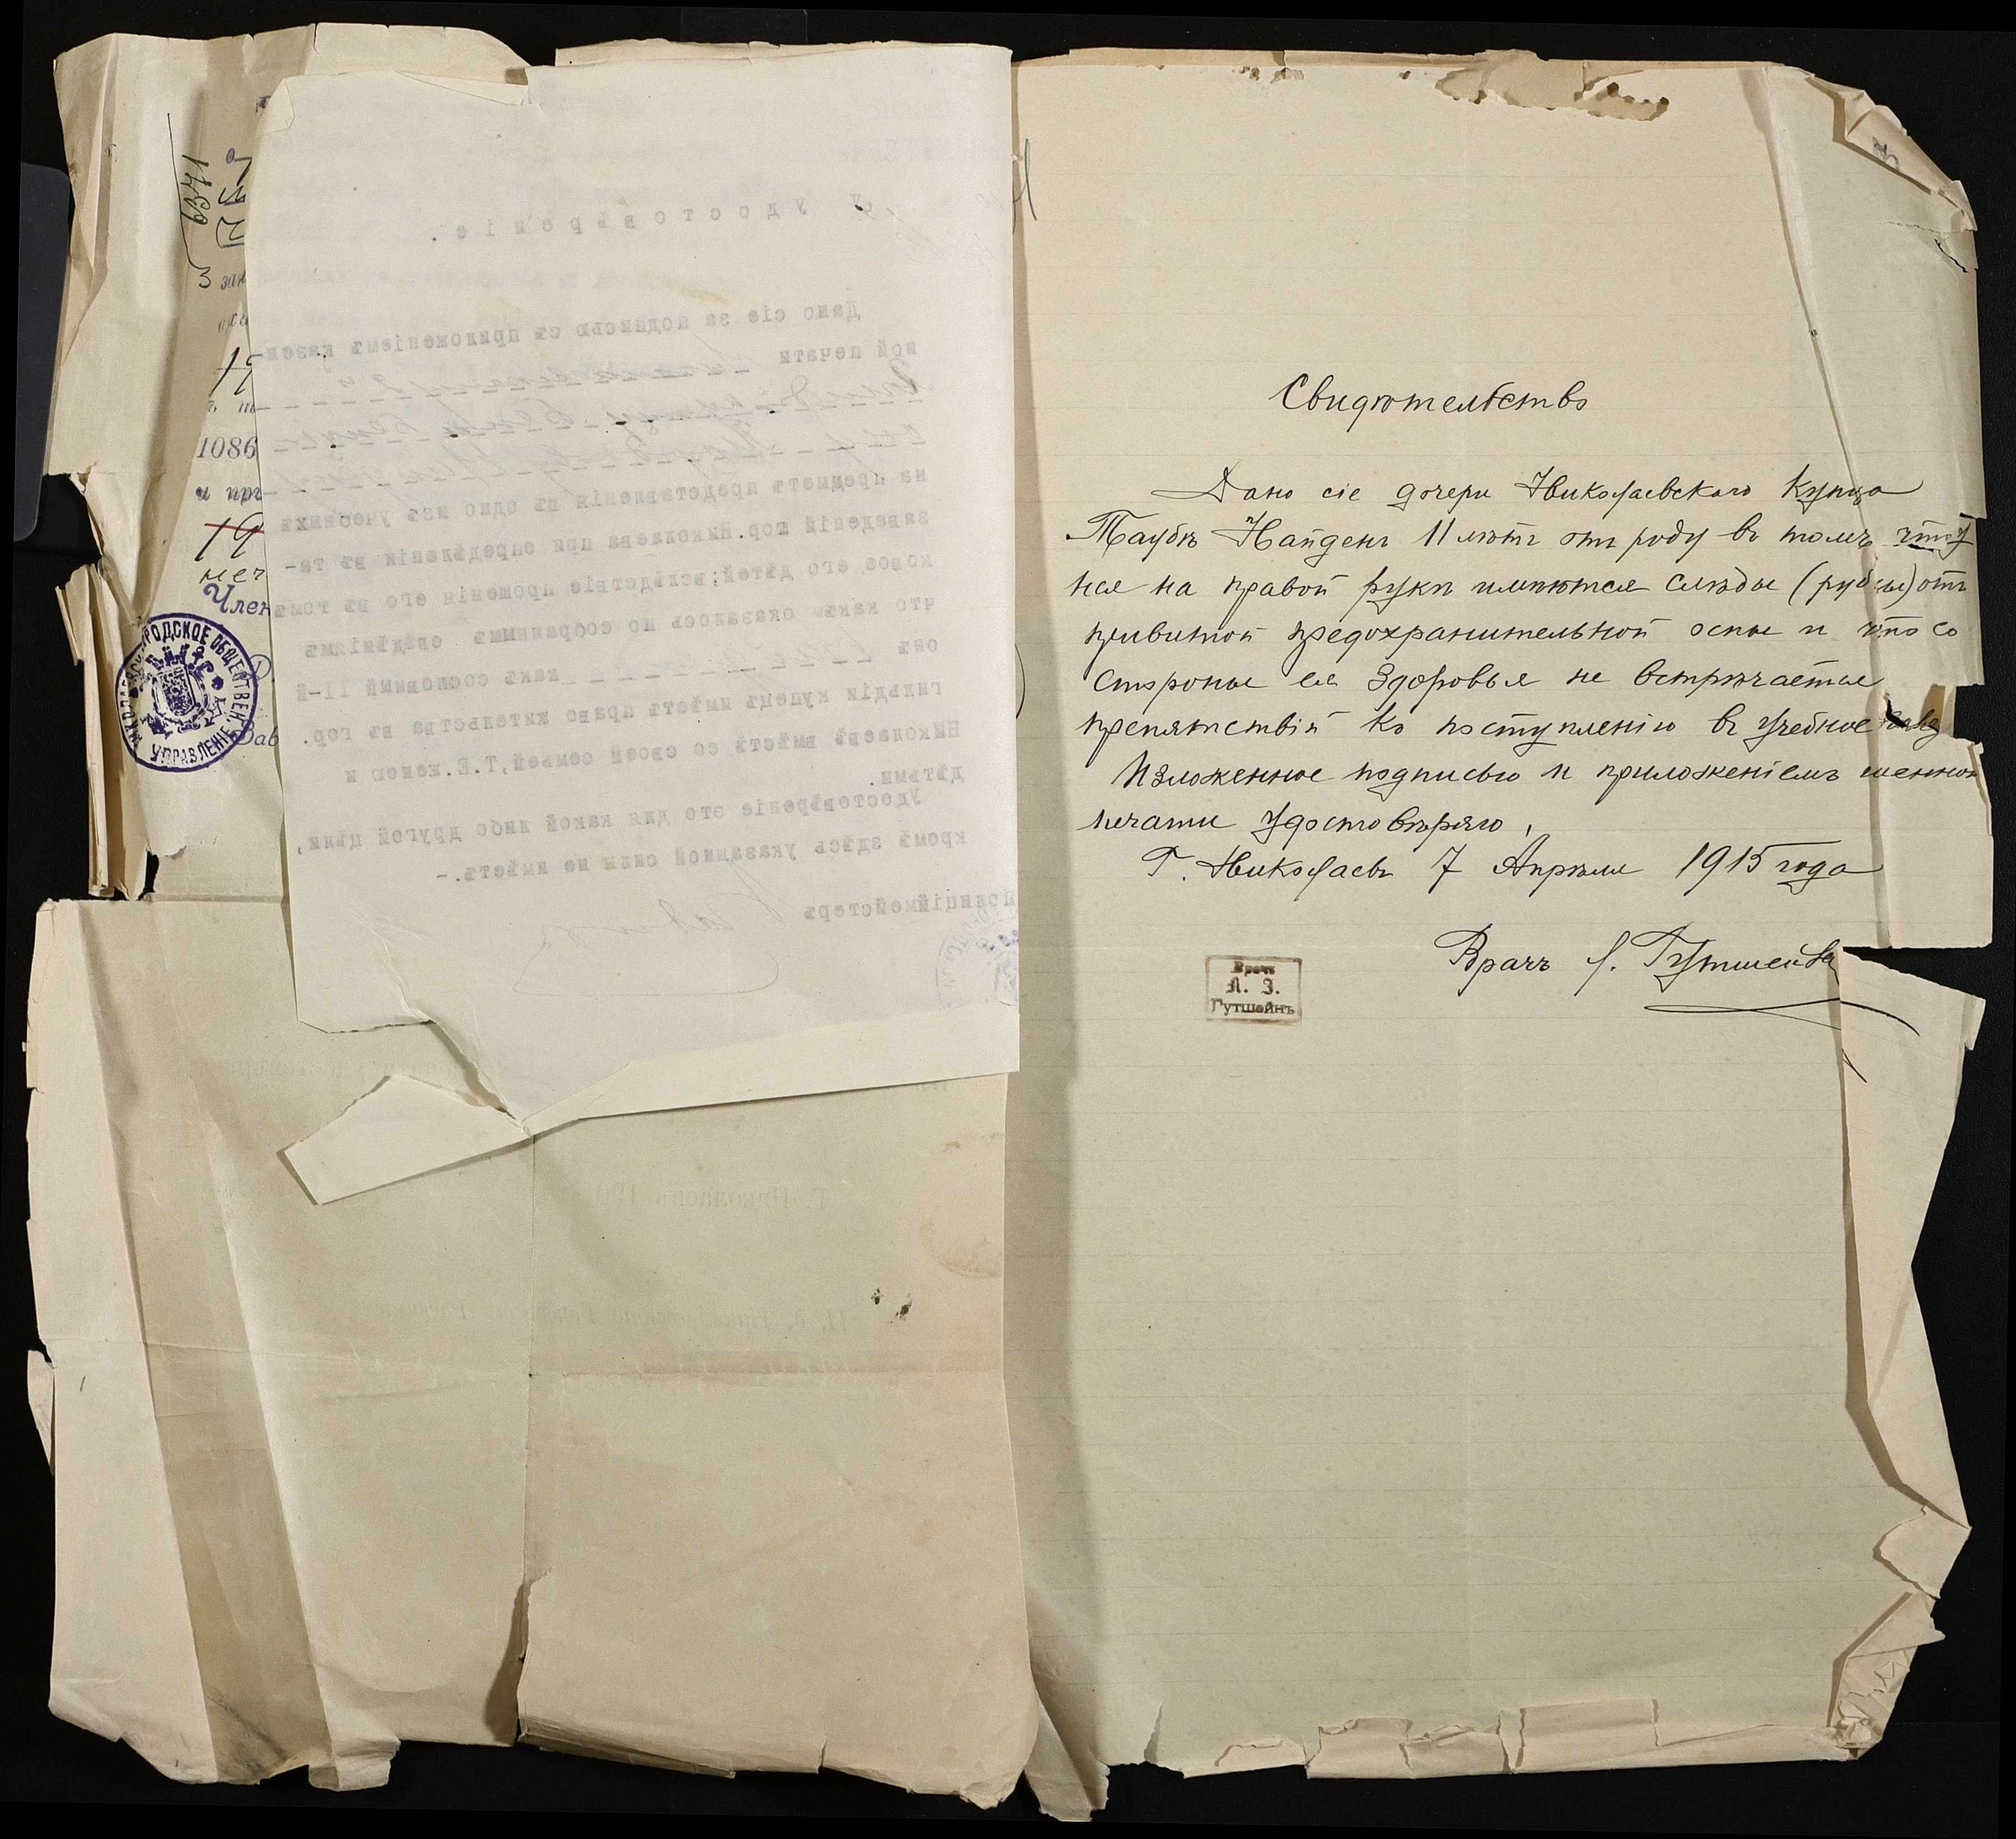 6341
З
зак
1086
и пр
19
печ
Член
НИКОЛАЕВСКОЕ ГОРОДСКОЕ ОБЩЕСТВЕН. УПРАВЛЕНІЕ
Зав
Удостовѣреніе.
Дано сіе за подписью съ приложеніемъ казен-
ной печати
на предметъ представленія въ одно изъ учебныхъ
заведеній гор.Николаева при опредѣленіи въ та-
ковое его дѣтей;вслѣдствіе прошенія его въ томъ
что какъ оказалось по собраннымъ свѣдѣніямъ
онъ какъ сословный II-й
гильдіи купецъ имѣетъ право жительства въ гор.
Николаевѣ вмѣстѣ со своей семьей,Т.Е.женою и
дѣтьми.
Удостовѣреніе это для какой либо другой цѣли,
кромѣ здѣсь указанной силы не имѣетъ.-
Полиціймейстеръ
Свидѣтельство
Дано сіе дочери Николаевскаго Купца
Таубѣ Найденъ 11 лѣтъ отъ роду въ томъ что у
нея на правой руки имѣются слѣды (рубцы) отъ
привитой предохранительной оспы и что со
стороны ея Здоровья не встрѣчается
препятствій ко поступленію въ Учебное завед
Изложенное подписью и приложеніемъ именной
печати Удостовѣряю,
Г. Николаевъ 7 Апрѣля 1915 года
Врачъ Л. Гутшейнъ
Врачъ
Л. З.
Гутшейнъ